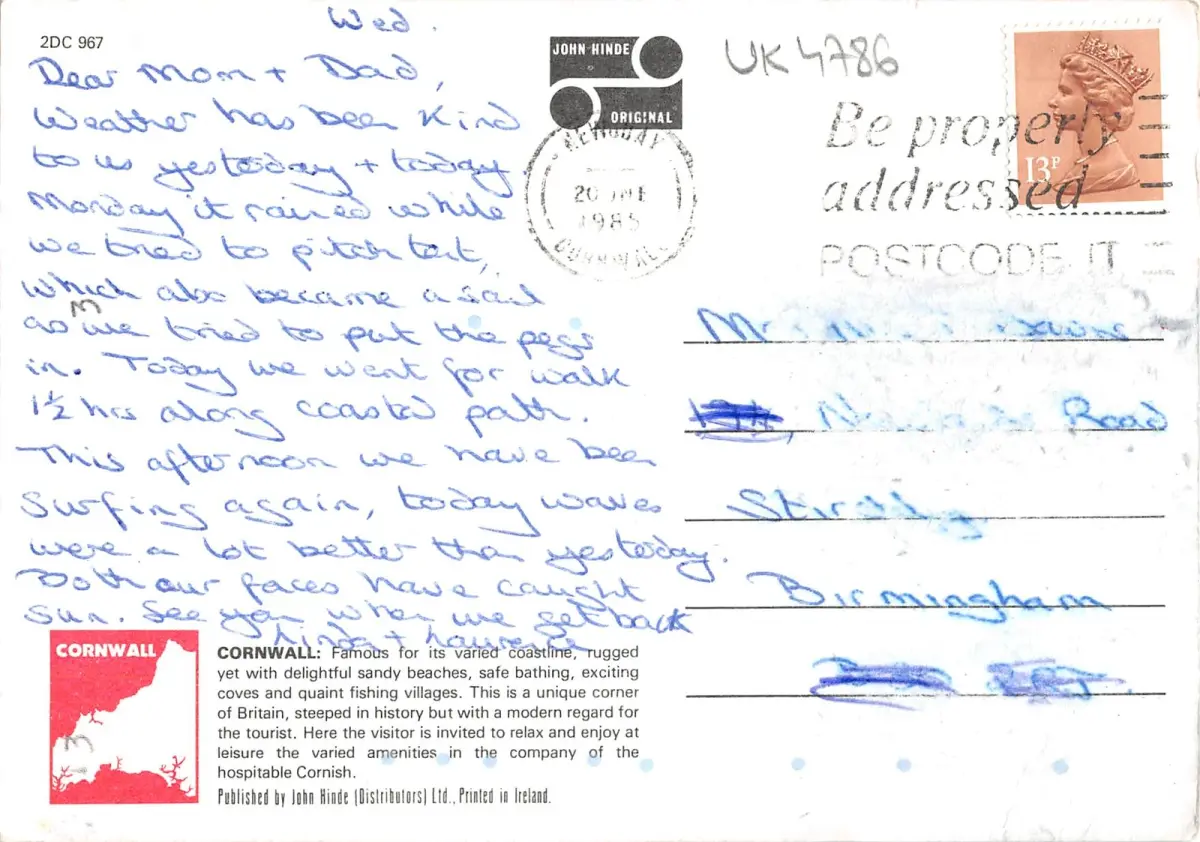 2DC 967
Wed.
Dear Mom + Dad,
Weather has been kind
to us yesterday + today
Monday it rained while
we tried to pitch tent,
which also became a sail
as we tried to put the pegs
in. Today we went for walk
1½ hrs along coastal path.
This afternoon we have been
surfing again, today waves
were a lot better than yesterday.
Both our faces have caught
sun. See you when we get back
Linda + Laurence
CORNWALL
CORNWALL: Famous for its varied coastline, rugged
yet with delightful sandy beaches, safe bathing, exciting
coves and quaint fishing villages. This is a unique corner
of Britain, steeped in history but with a modern regard for
the tourist. Here the visitor is invited to relax and enjoy at
leisure the varied amenities in the company of the
hospitable Cornish.
Published by John Hinde (Distributors) Ltd., Printed in Ireland.
13
JOHN HINDE
ORIGINAL
NEWQUAY
20 JNE
1985
CORNWALL
UK4786
Be properly
addressed
POSTCODE IT
13P
Road
Stirchley
Birmingham